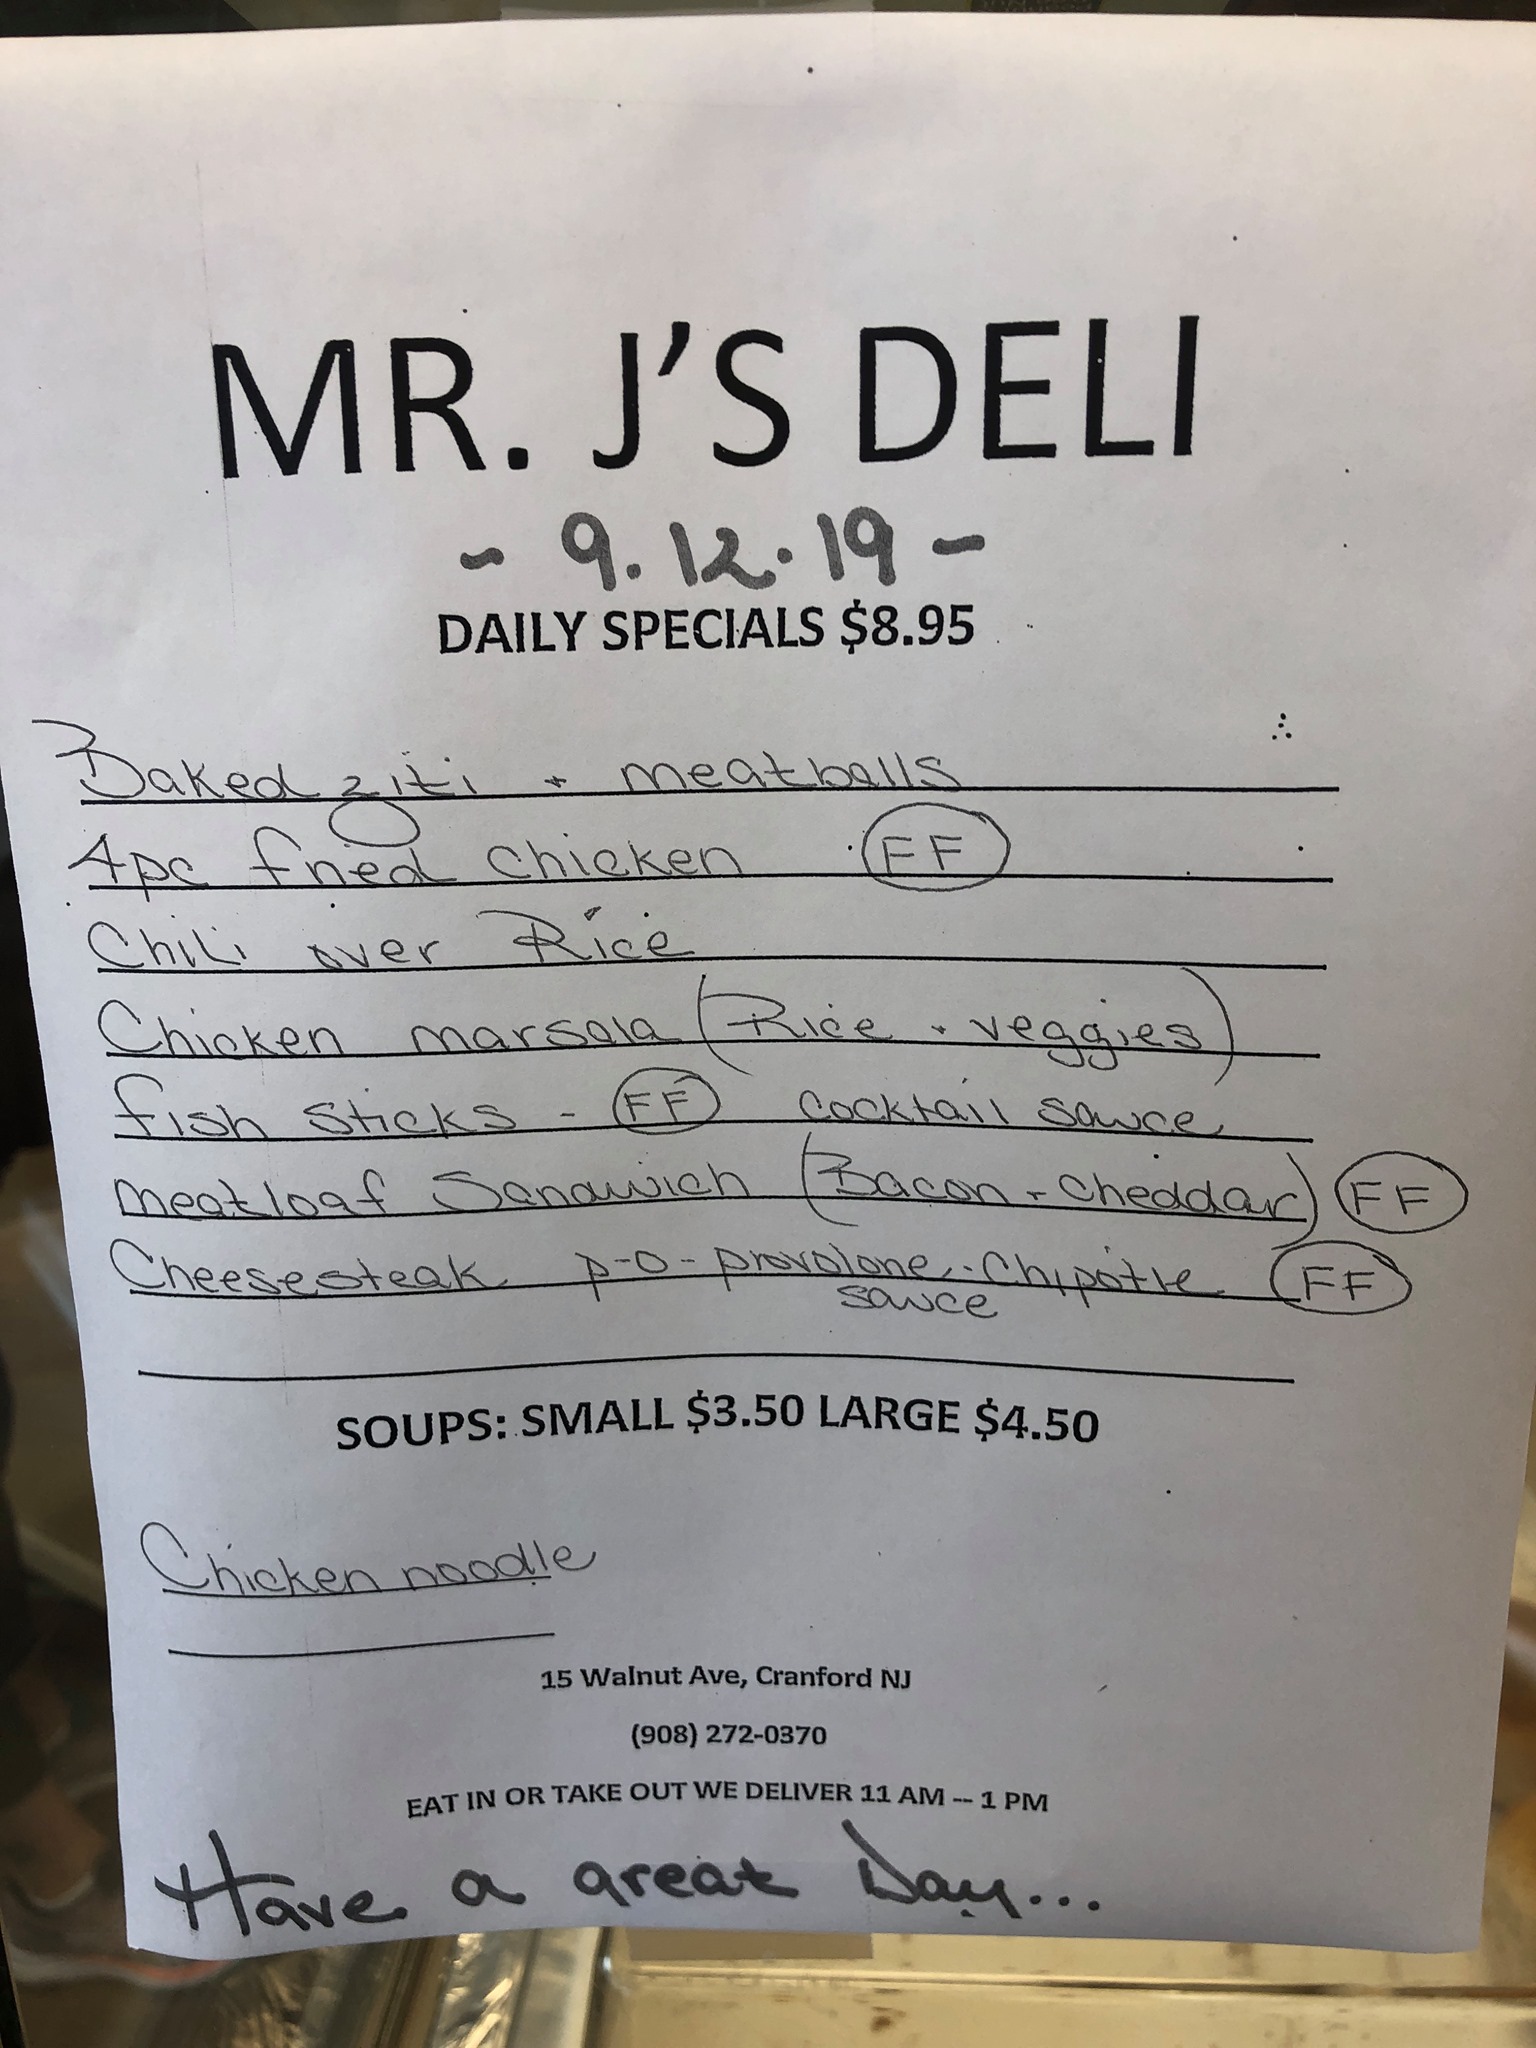 MR. J'S DELI
- 9.12.19 -
DAILY SPECIALS $8.95
Baked ziti + meatballs
4pc fried chicken FF
Chili over Rice
Chicken marsala (Rice + veggies)
fish sticks - FF cocktail sauce
meatloaf Sandwich (Bacon + Cheddar) FF
Cheesesteak p-o-provolone - Chipotle FF
sauce
SOUPS: SMALL $3.50 LARGE $4.50
Chicken noodle
15 Walnut Ave, Cranford NJ
(908) 272-0370
EAT IN OR TAKE OUT WE DELIVER 11 AM -- 1 PM
Have a great Day...